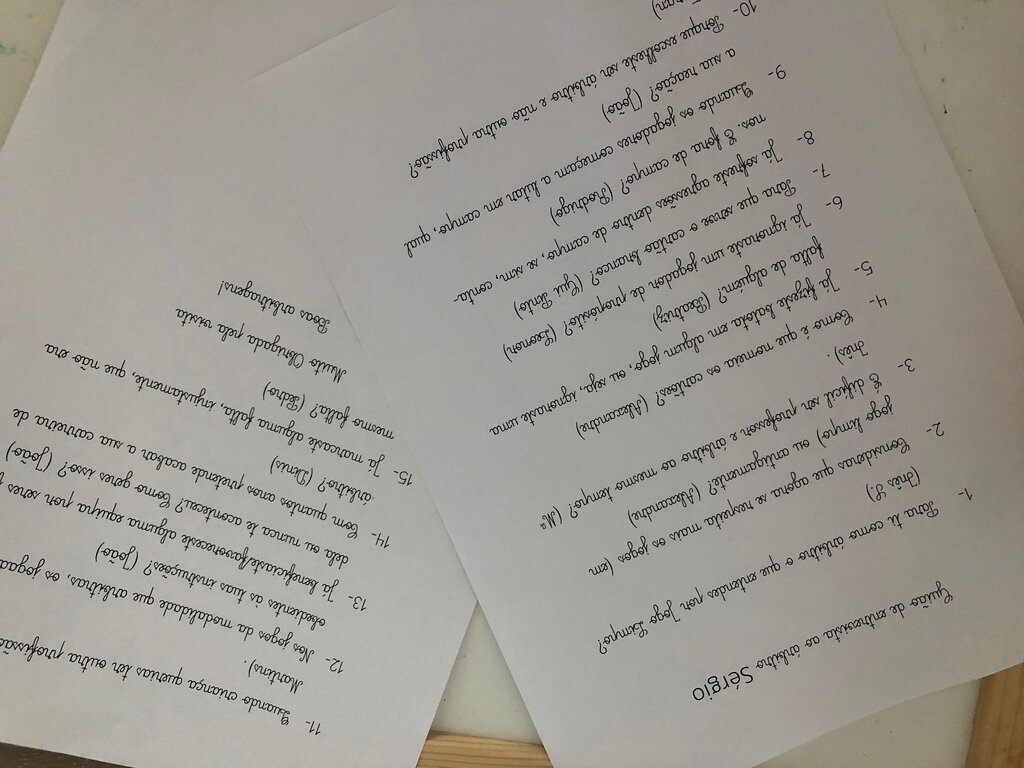 Guião de entrevista ao árbitro Sérgio
1- Para ti como árbitro o que entendes por Jogo Limpo?
(Inês L)
2- Consideras que agora se respeita mais os jogos (em
jogo limpo) ou antigamente? (Alexandre)
3- É difícil ser professor e árbitro ao mesmo tempo? (Mª
Inês).
4- Como é que nomeia os cartões? (Alexandre)
5- Já fizeste batota em algum jogo, ou seja, ignoraste uma
falta de alguém? (Beatriz)
6- Já ignoraste um jogador de propósito? (Leonor)
7- Para que serve o cartão branco? (Gui Pinto)
8- Já sofreste agressões dentro de campo, se sim, conta-
nos. E fora de campo? (Rodrigo)
9- Quando os jogadores começam a lutar em campo, qual
a sua reação? (João)
10- Porque escolheste ser árbitro e não outra profissão?
11- Quando criança querias ter outra profissão
Martins).
12- Nos jogos da modalidade que arbitras, os
obedientes às tuas instruções? (João)
13- Já beneficiaste/favoreceste alguma equipa por seres
dela ou nunca te aconteceu? Como geres isso? (João)
14- Com quantos anos pretende acabar a sua carreira de
árbitro? (Denis)
15- Já marcaste alguma falta, injustamente, que não era
mesmo falta? (Pedro)
Muito Obrigada pela visita
Boas arbitragens!